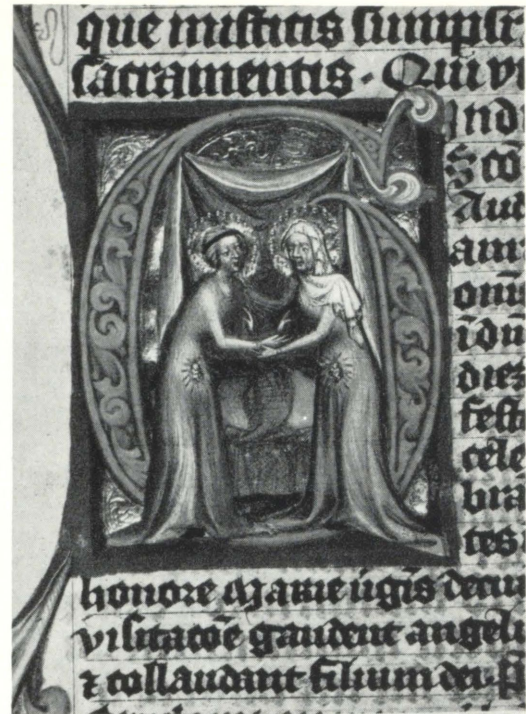 que misticis sumpsi
sacramentis · Qui v
nd
s cō
Aud
am
omī
ī dn̄
diez
fest
cele
bra
tes
honore Marie ūgīs de cui
visitacōe gaudent angeli
⁊ collaudant filium dei